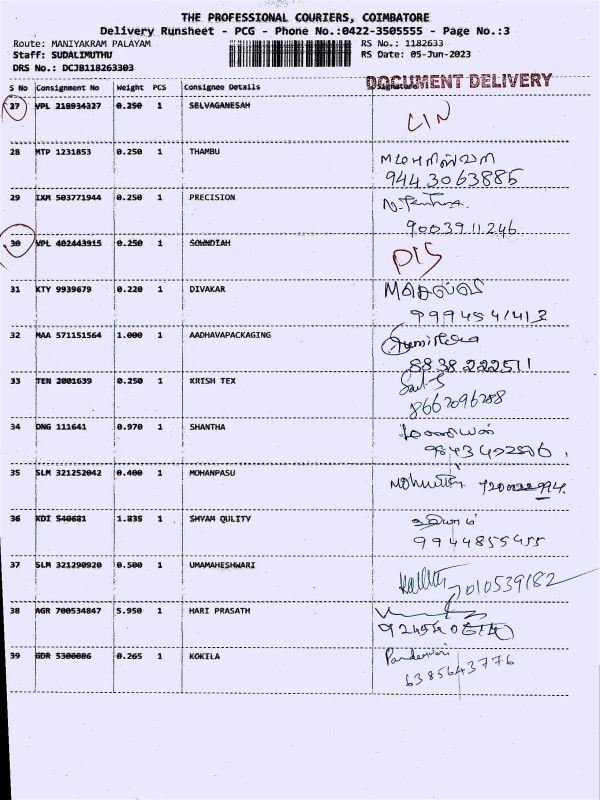 THE PROFESSIONAL COURIERS, COIMBATORE
Delivery Runsheet - PCG - Phone No.:0422-3505555 - Page No.:3
Route: MANIYAKRAM PALAYAM RS No.: 1182633
Staff: SUDALIMUTHU RS Date: 05-Jun-2023
DRS No.: DCJB118263303
DOCUMENT DELIVERY
S No Consignment No Weight PCS Consignee Details Signature
27 VPL 218934327 0.250 1 SELVAGANESAH LIN
28 MTP 1231853 0.250 1 THAMBU
9443063885
29 IXM 503771944 0.250 1 PRECISION
9003911246
30 VPL 402443915 0.250 1 SOWNDIAH DIS
31 KTY 9939679 0.220 1 DIVAKAR
9994541413
32 MAA 571151564 1.000 1 AADHAVAPACKAGING
8838222511
33 TEN 2001639 0.250 1 KRISH TEX
8667096288
34 DNG 111641 0.970 1 SHANTHA
35 SLM 321252042 0.400 1 MOHANPASU
36 KDI 540681 1.835 1 SHYAM QULITY
9944855455
37 SLM 321290920 0.500 1 UMAMAHESHWARI
7010539182
38 AGR 700534847 5.950 1 HARI PRASATH
39 GDR 5300086 0.265 1 KOKILA Pandeswari
6385643776